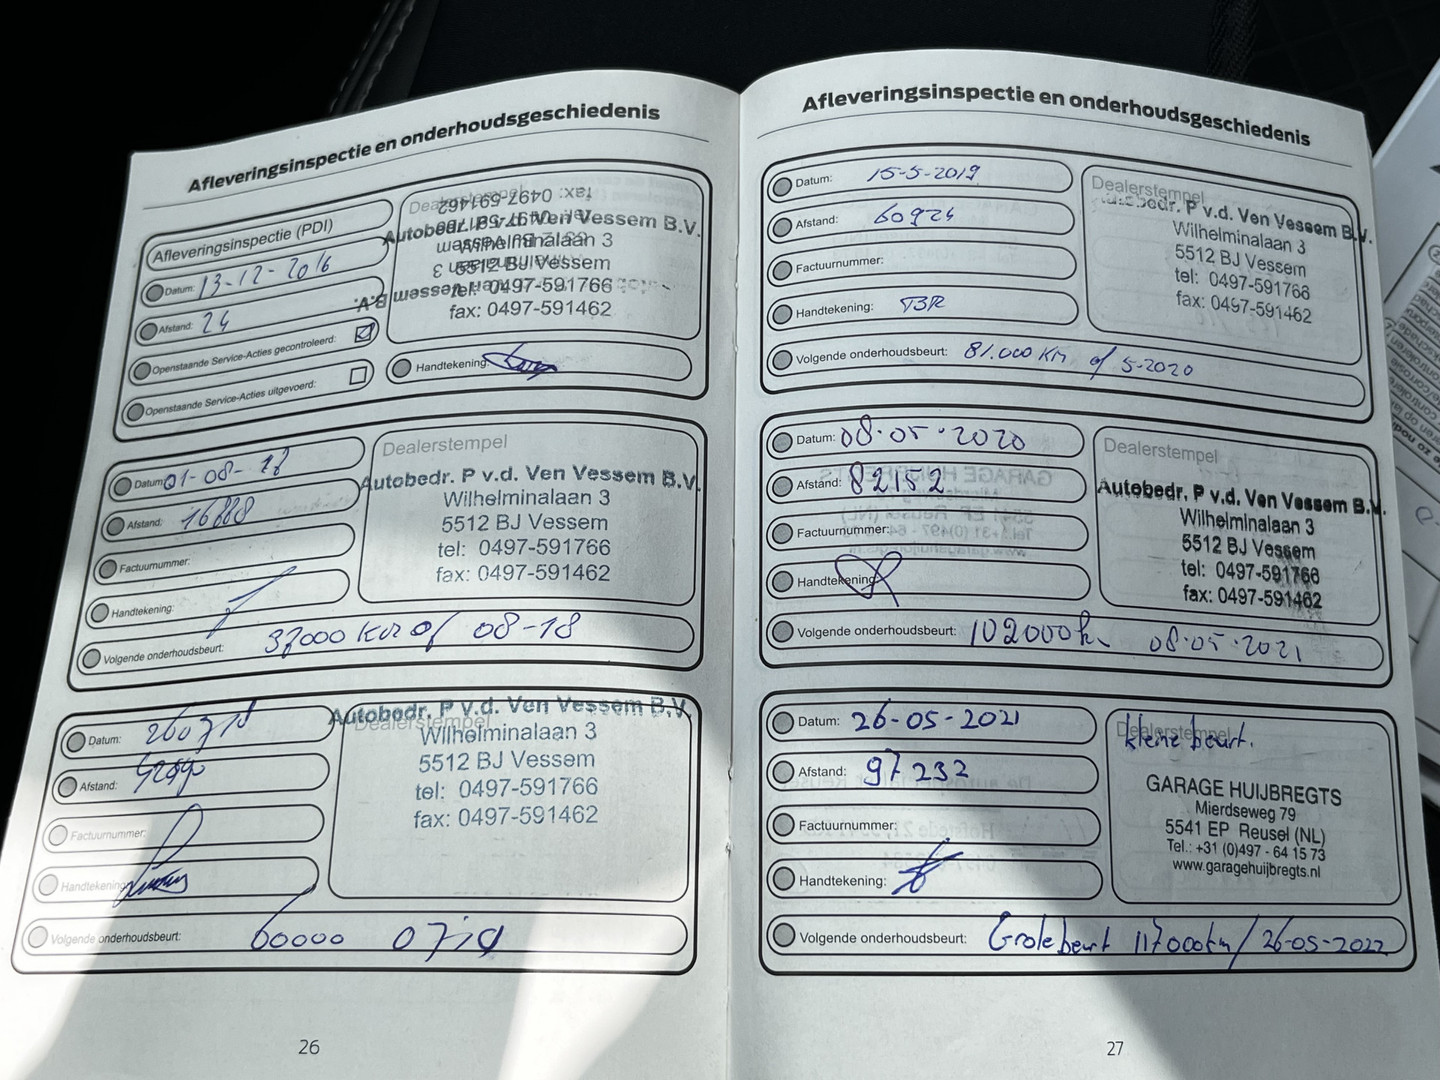 Afleveringsinspectie en onderhoudsgeschiedenis
Afleveringsinspectie (PDI)
Datum: 13-12-2016
Afstand: 24
Openstaande Service-Acties gecontroleerd:
Openstaande Service-Acties uitgevoerd:
Dealerstempel
Autobedr. P v.d. Ven Vessem B.V.
Wilhelminalaan 3
5512 BJ Vessem
tel: 0497-591766
fax: 0497-591462
Handtekening:
Datum: 01-08-
Afstand:
Factuurnummer:
Handtekening:
Volgende onderhoudsbeurt: 37000 Km of 08-18
Dealerstempel
Autobedr. P v.d. Ven Vessem B.V.
Wilhelminalaan 3
5512 BJ Vessem
tel: 0497-591766
fax: 0497-591462
Datum: 260718
Afstand:
Factuurnummer:
Handtekening:
Volgende onderhoudsbeurt: 60000
Dealerstempel
Autobedr. P v.d. Ven Vessem B.V.
Wilhelminalaan 3
5512 BJ Vessem
tel: 0497-591766
fax: 0497-591462
26
Afleveringsinspectie en onderhoudsgeschiedenis
Datum: 15-5-2019
Afstand: 60924
Factuurnummer:
Handtekening:
Volgende onderhoudsbeurt: 81.000 Km of 5-2020
Dealerstempel
Autobedr. P v.d. Ven Vessem B.V.
Wilhelminalaan 3
5512 BJ Vessem
tel: 0497-591766
fax: 0497-591462
Datum: 08-05-2020
Afstand: 82152
Factuurnummer:
Handtekening:
Volgende onderhoudsbeurt: 102000 km 08-05-2021
Dealerstempel
Autobedr. P v.d. Ven Vessem B.V.
Wilhelminalaan 3
5512 BJ Vessem
tel: 0497-591766
fax: 0497-591462
Datum: 26-05-2021
Afstand: 97232
Factuurnummer:
Handtekening:
Volgende onderhoudsbeurt: Grote beurt 117000km/26-05-2022
Dealerstempel
kleine beurt.
GARAGE HUIJBREGTS
Mierdseweg 79
5541 EP Reusel (NL)
Tel.: +31 (0)497 - 64 15 73
www.garagehuijbregts.nl
27